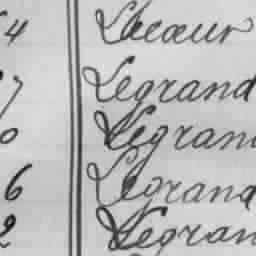 4 Lecœur
7 Legrand
0 Legran
6 Legrand
2 Legran